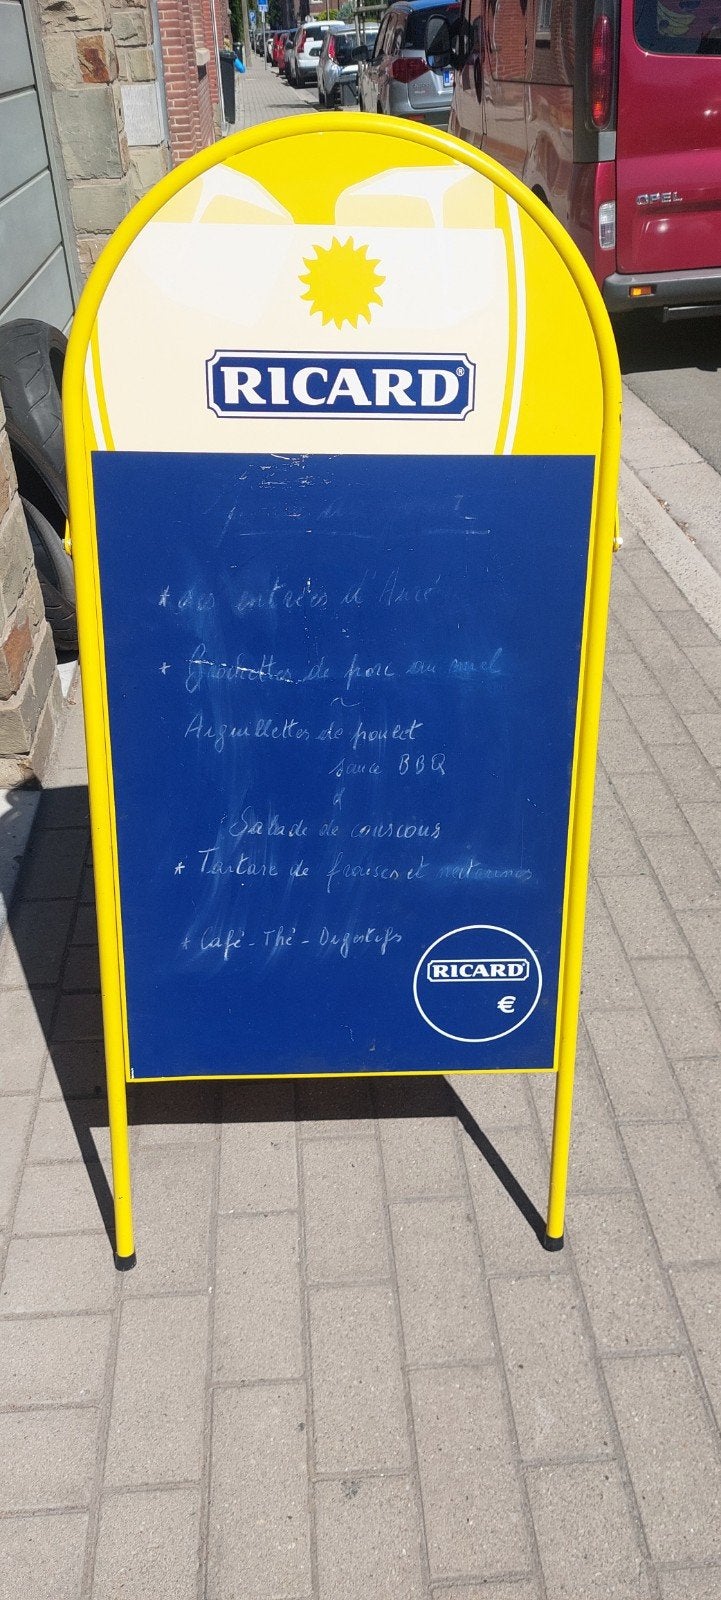 OPEL
RICARD®
* des entrées d'
* Brochettes de porc au miel
~
Aiguillettes de poulet
sauce BBQ
&
Salade de couscous
* Tartare de fraises et nectarines
* Café - Thé - Digestifs
RICARD
€